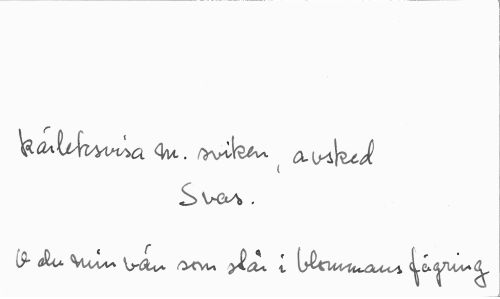 kärleksvisa m. sviken, avsked
Svas.
O du min vän som står i blommans fägring